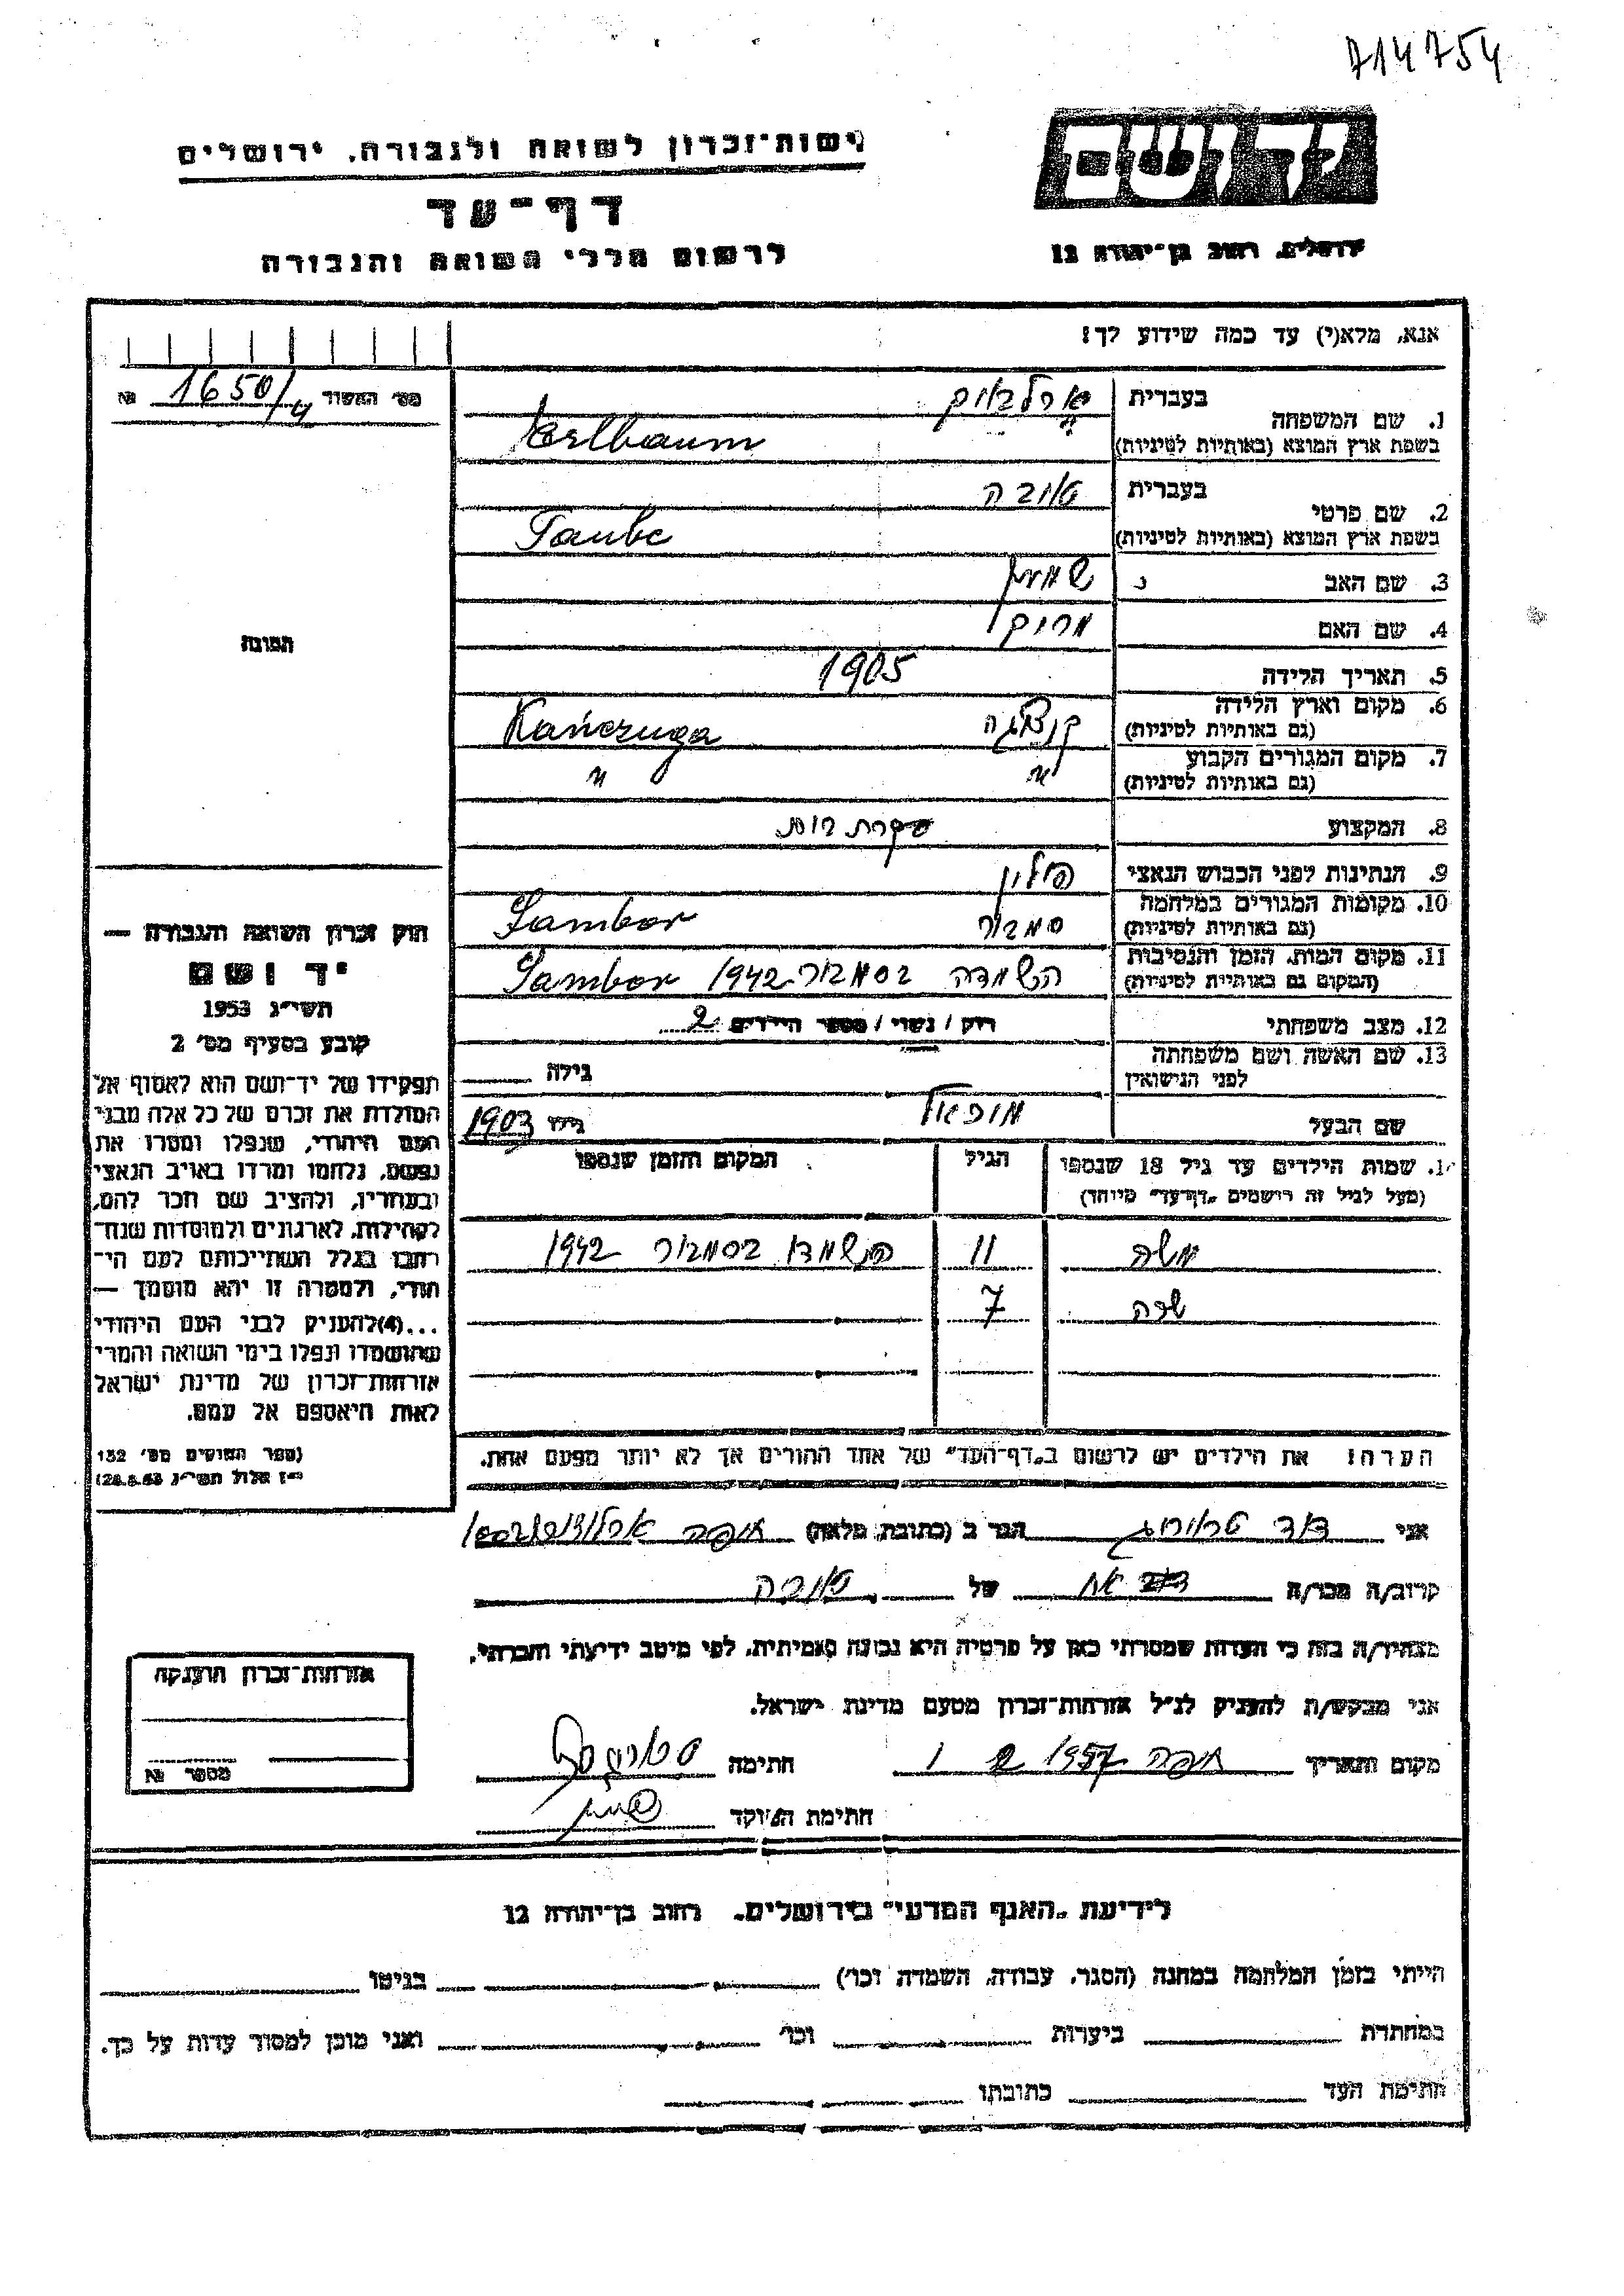 714754
רשות־זכרון לשואה ולגבורה, ירושלים
יד ושם
דף־עד
ירושלים, רחוב בן־יהודה 12
לרשום חללי השואה והגבורה
אנא, מלא(י) עד כמה שידוע לך!
מס׳ האשור 1650/4 №
בעברית
1. שם המשפחה
בשפת ארץ המוצא (באותיות לטיניות)
בעברית טובה
2. שם פרטי
בשפת ארץ המוצא (באותיות לטיניות) Taube
3. שם האב
4. שם האם מרים
5. תאריך הלידה 1905
6. מקום וארץ הלידה
(גם באותיות לטיניות) Kańczuga
7. מקום המגורים הקבוע
(גם באותיות לטיניות) " "
8. המקצוע עקרת בית
9. הנתינות לפני הכבוש הנאצי פולין
10. מקומות המגורים במלחמה
(גם באותיות לטיניות) סמבור Sambor
11. מקום המות, הזמן והנסיבות
(המקום גם באותיות לטיניות) הושמדה בסמבור 1942 Sambor
12. מצב משפחתי רוק / נשוי / מספר הילדים 2
13. שם האשה ושם משפחתה
לפני הנישואין גילה
שם הבעל גילו 1903
14. שמות הילדים עד גיל 18 שנספו הגיל המקום והזמן שנספו
(מעל לגיל זה רישמים „דף־עד״ מיוחד)
משה 11 הושמדו בסמבור 1942
שרה 7
הערה! את הילדים יש לרשום ב„דף־העד״ של אחד ההורים אך לא יותר מפעם אחת.
התמונה
חוק זכרון השואה והגבורה —
יד ושם
תשי״ג 1953
קובע בסעיף מס׳ 2
תפקידו של יד־ושם הוא לאסוף אל
המולדת את זכרם של כל אלה מבני
העם היהודי, שנפלו ומסרו את
נפשם, נלחמו ומרדו באויב הנאצי
ובעוזריו, ולהציב שם וזכר להם,
לקהילות, לארגונים ולמוסדות שנח־
רבו בגלל השתייכותם לעם הי־
הודי, ולמטרה זו יהא מוסמך —
...(4)להעניק לבני העם היהודי
שהושמדו ונפלו בימי השואה והמרי
אזרחות־זכרון של מדינת ישראל
לאות היאספם אל עמם.
(ספר החוקים מס׳ 132
י״ז אלול תשי״ג 28.8.53)
אני דוד הגר ב (כתובת מלאה) חיפה
קרוב/ה מכר/ה אח של טובה
מצהיר/ה בזה כי העדות שמסרתי כאן על פרטיה היא נכונה ואמיתית, לפי מיטב ידיעתי והכרתי.
אני מבקש/ת להעניק לנ״ל אזרחות־זכרון מטעם מדינת ישראל.
מקום ותאריך חיפה 1957 חתימה
חתימת הפוקד
אזרחות־זכרון הוענקה
מספר №
לידיעת „האגף המדעי״ בירושלים, רחוב בן־יהודה 12
הייתי בזמן המלחמה במחנה (הסגר, עבודה, השמדה וכו׳) בגיטו
במחתרת ביערות וכו׳ ואני מוכן למסור עדות על כך.
חתימת העד כתובתו